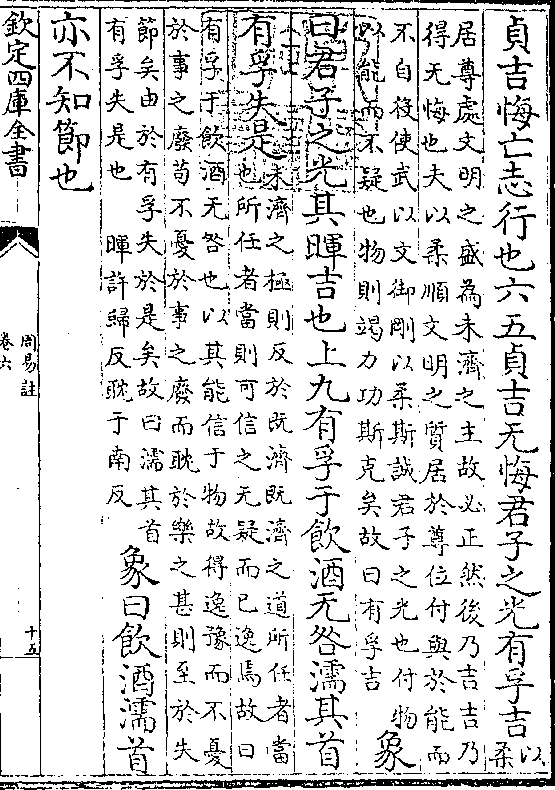 貞吉悔亡志行也六五貞吉无悔君子之光有孚吉以柔
居尊處文明之盛為未濟之主故必正然後乃吉吉乃
得无悔也夫以柔順文明之質居於尊位付與於能而
不自役使武以文御剛以柔斯誠君子之光也付物
以能而不疑也物則竭力功斯克矣故曰有孚吉 象
曰君子之光其暉吉也上九有孚于飲酒无咎濡其首
有孚失是未濟之極則反於既濟既濟之道所任者當
也所任者當則可信之无疑而已逸焉故曰
有孚于飲酒无咎也以其能信于物故得逸豫而不憂
於事之廢苟不憂於事之廢而耽於樂之甚則至於失
節矣由於有孚失於是矣故曰濡其首
有孚失是也 暉許歸反耽于南反 象曰飲酒濡首
亦不知節也
欽定四庫全書
周易註
卷六
十五